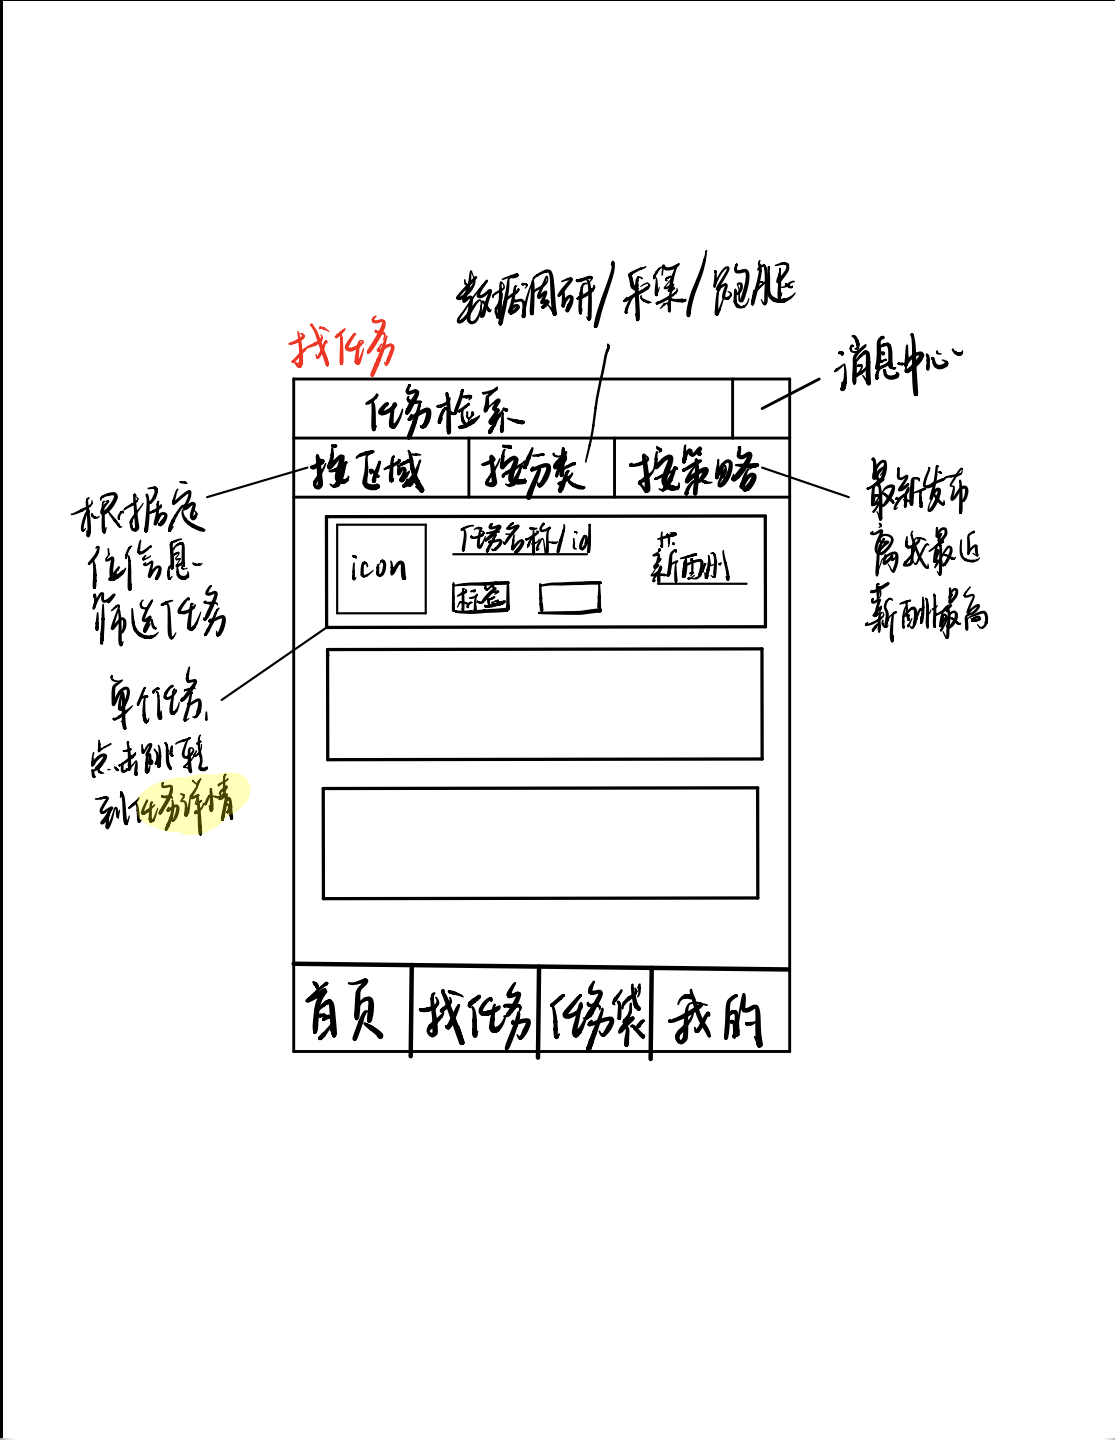 数据调研/采集/跑腿
找任务
消息中心
任务检索
按区域
按分类
按策略
根据定
位信息
筛选任务
最新发布
离我最近
薪酬最高
icon
任务名称/id
标签
薪酬
单个任务,
点击跳转
到任务详情
首页
找任务
任务袋
我的